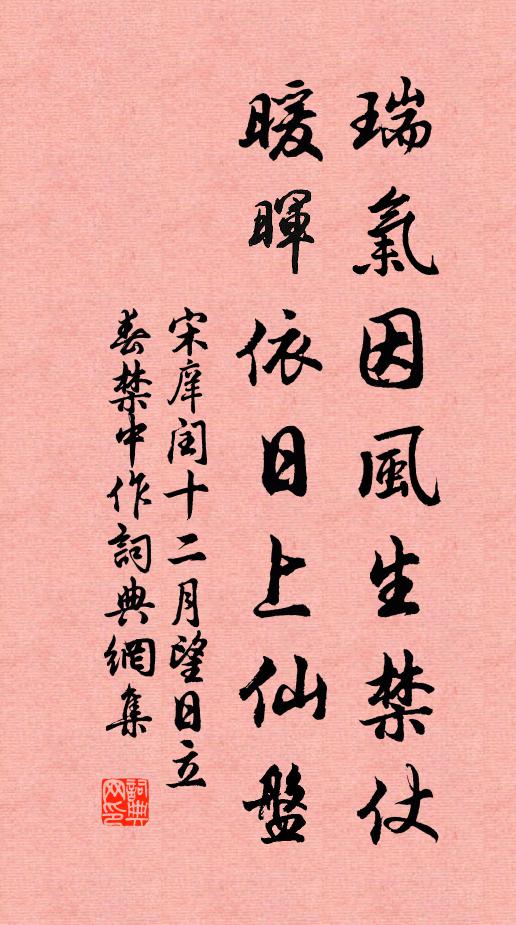 瑞氣因風生禁仗
暖暉依日上仙盤
宋庠閏十二月望日立
春禁中作詞典網集
詞典
网印